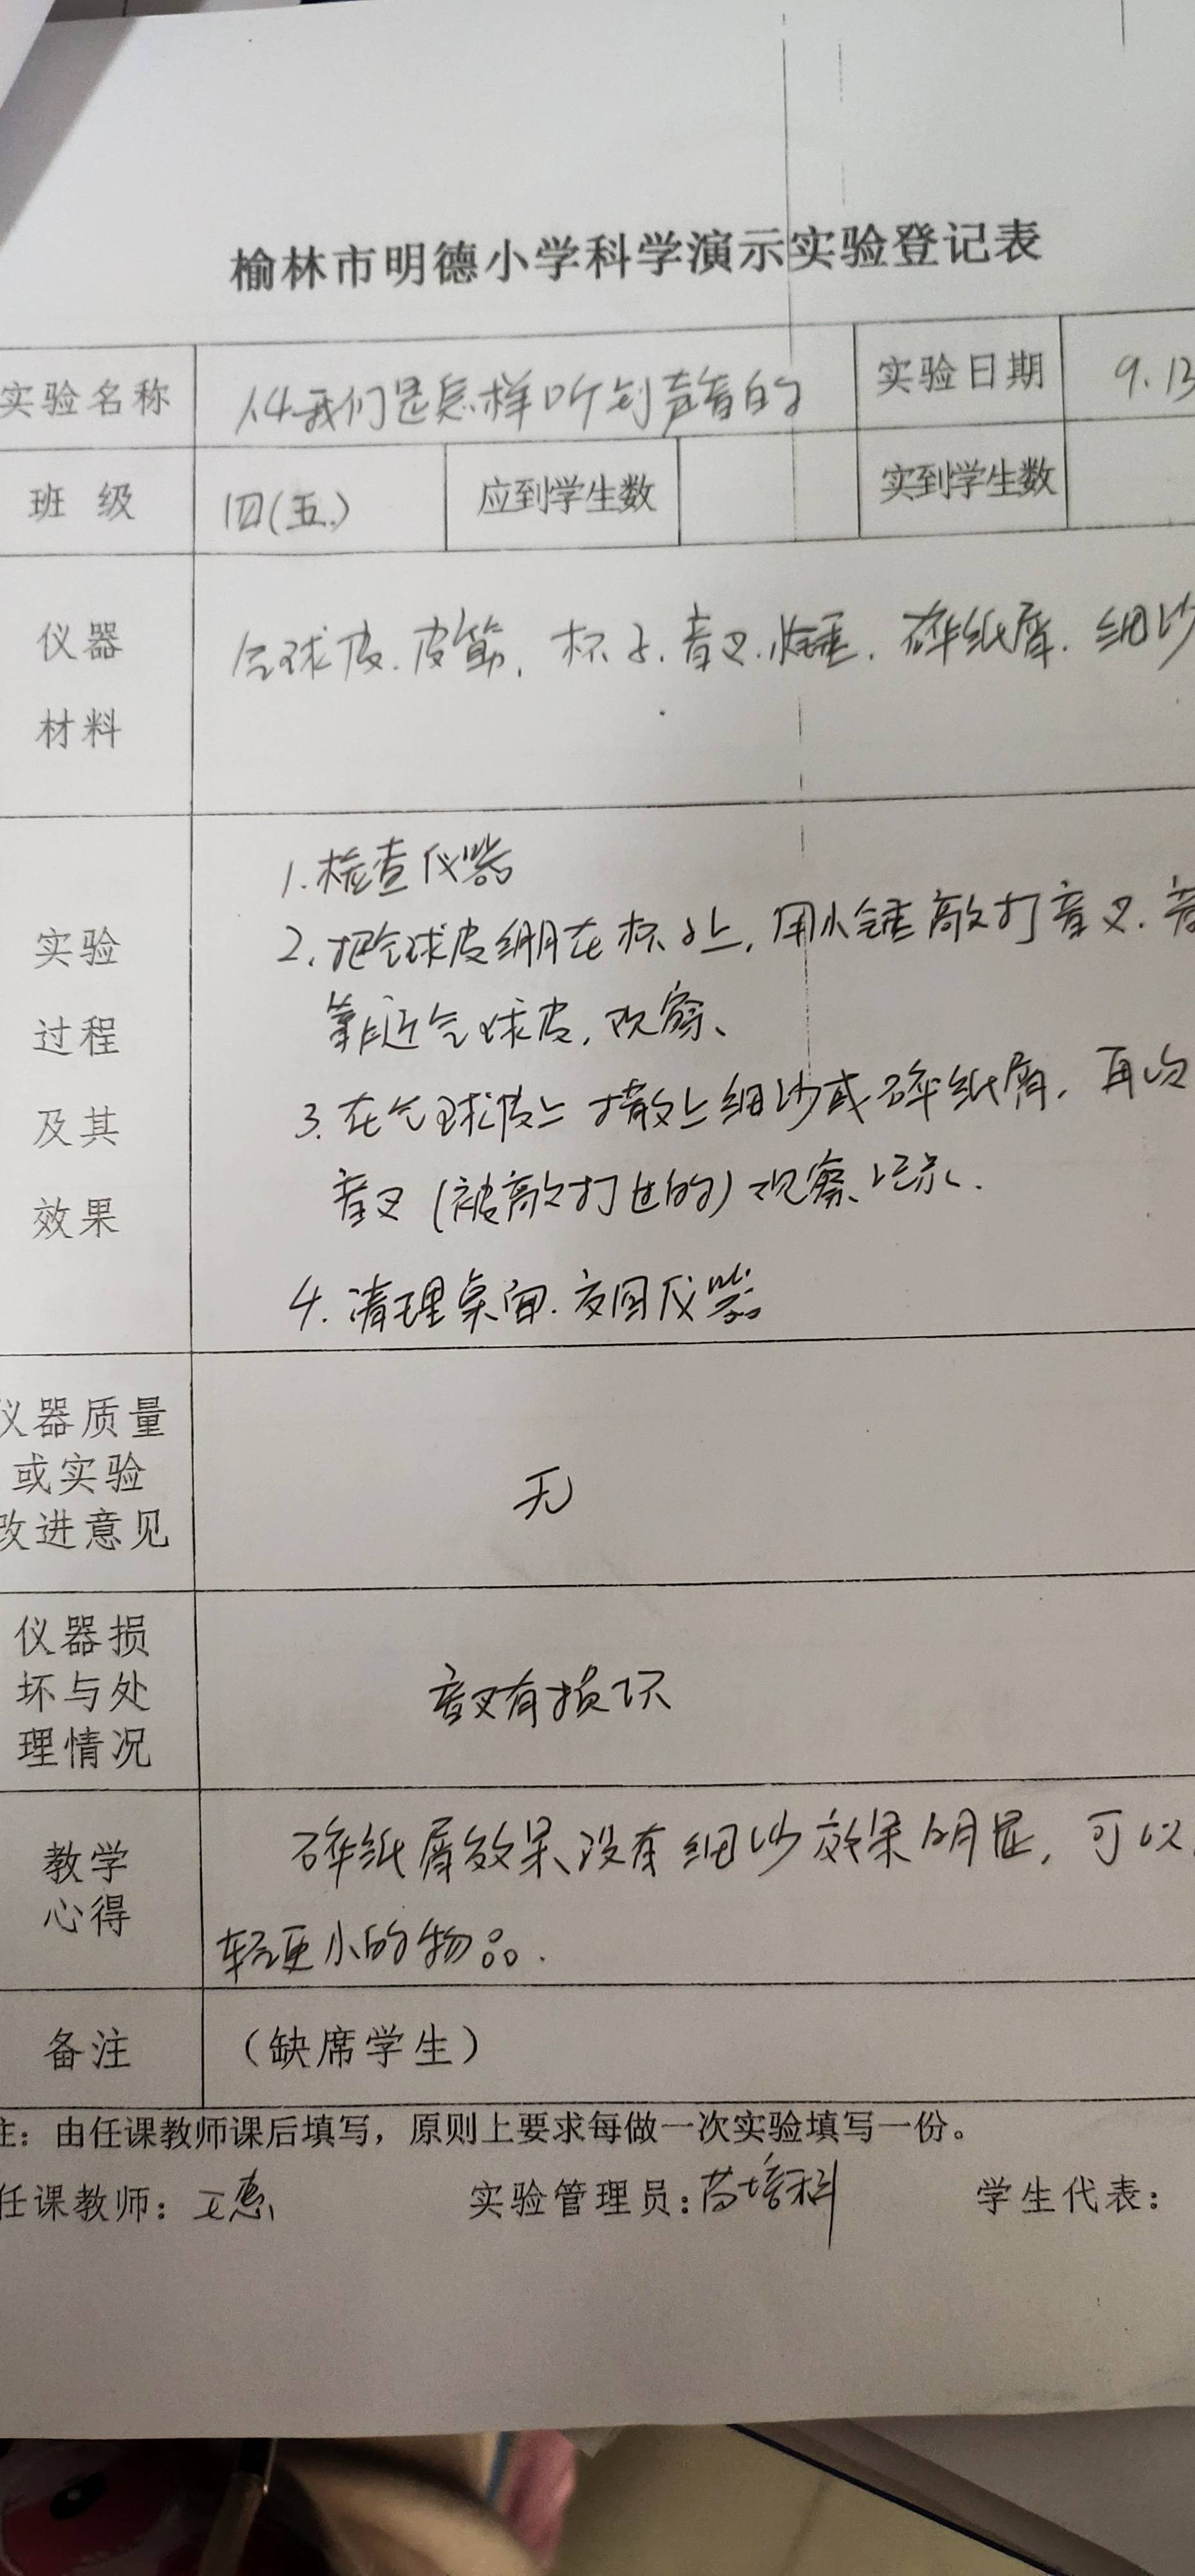 榆林市明德小学科学演示实验登记表
实验名称 1.4我们是怎样听到声音的 实验日期 9.13
班 级 四(五) 应到学生数 实到学生数
仪器 气球皮、皮筋、杯子、音叉、小锤、碎纸屑、细沙
材料
1.检查仪器
实验 2.把气球皮绷在杯子上,用小锤敲打音叉.
过程 靠近气球皮,观察、
及其 3.在气球皮上撒上细沙或碎纸屑,再次
效果 音叉(被敲打过的)观察、记录.
4.清理桌面.交回仪器
仪器质量
或实验 无
改进意见
仪器损
坏与处 音叉有损坏
理情况
教学 碎纸屑效果没有细沙效果明显,可以
心得 轻更小的物品.
备注 (缺席学生)
注:由任课教师课后填写,原则上要求每做一次实验填写一份。
任课教师:王惠 实验管理员:苗培科 学生代表: